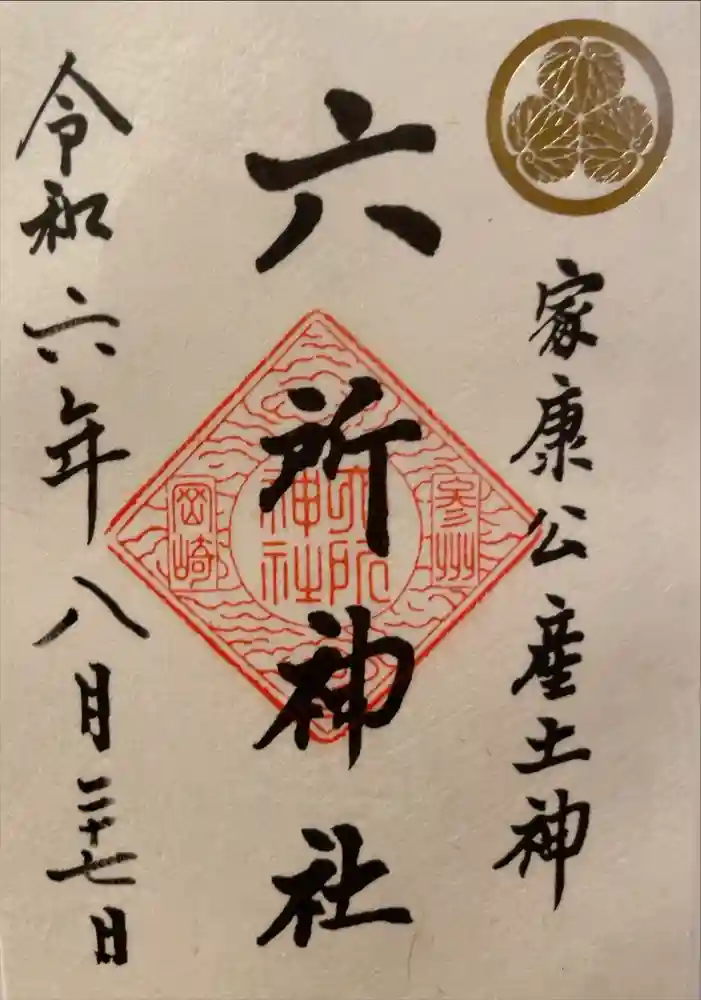 家康公産土神
六所神社
参州
六所
神社
岡崎
令和六年八月二十七日